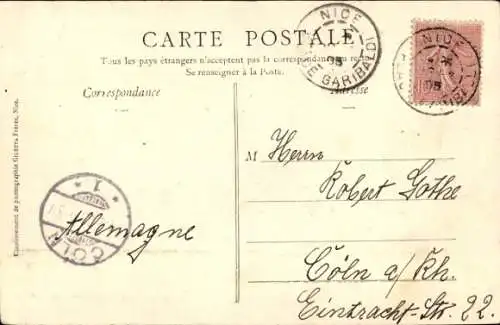 CARTE POSTALE
Tous les pays étrangers n'acceptent pas la correspondance au recto
Se renseigner à la Poste.
Correspondance
Adresse
NICE
05
GARIBALDI
NICE
05
M Herrn
Robert Gothe
Cöln a/Rh.
Eintracht-Str. 22.
Allemagne
CÖLN
* 1 *
Etablissement de photographie Frères, Nice.